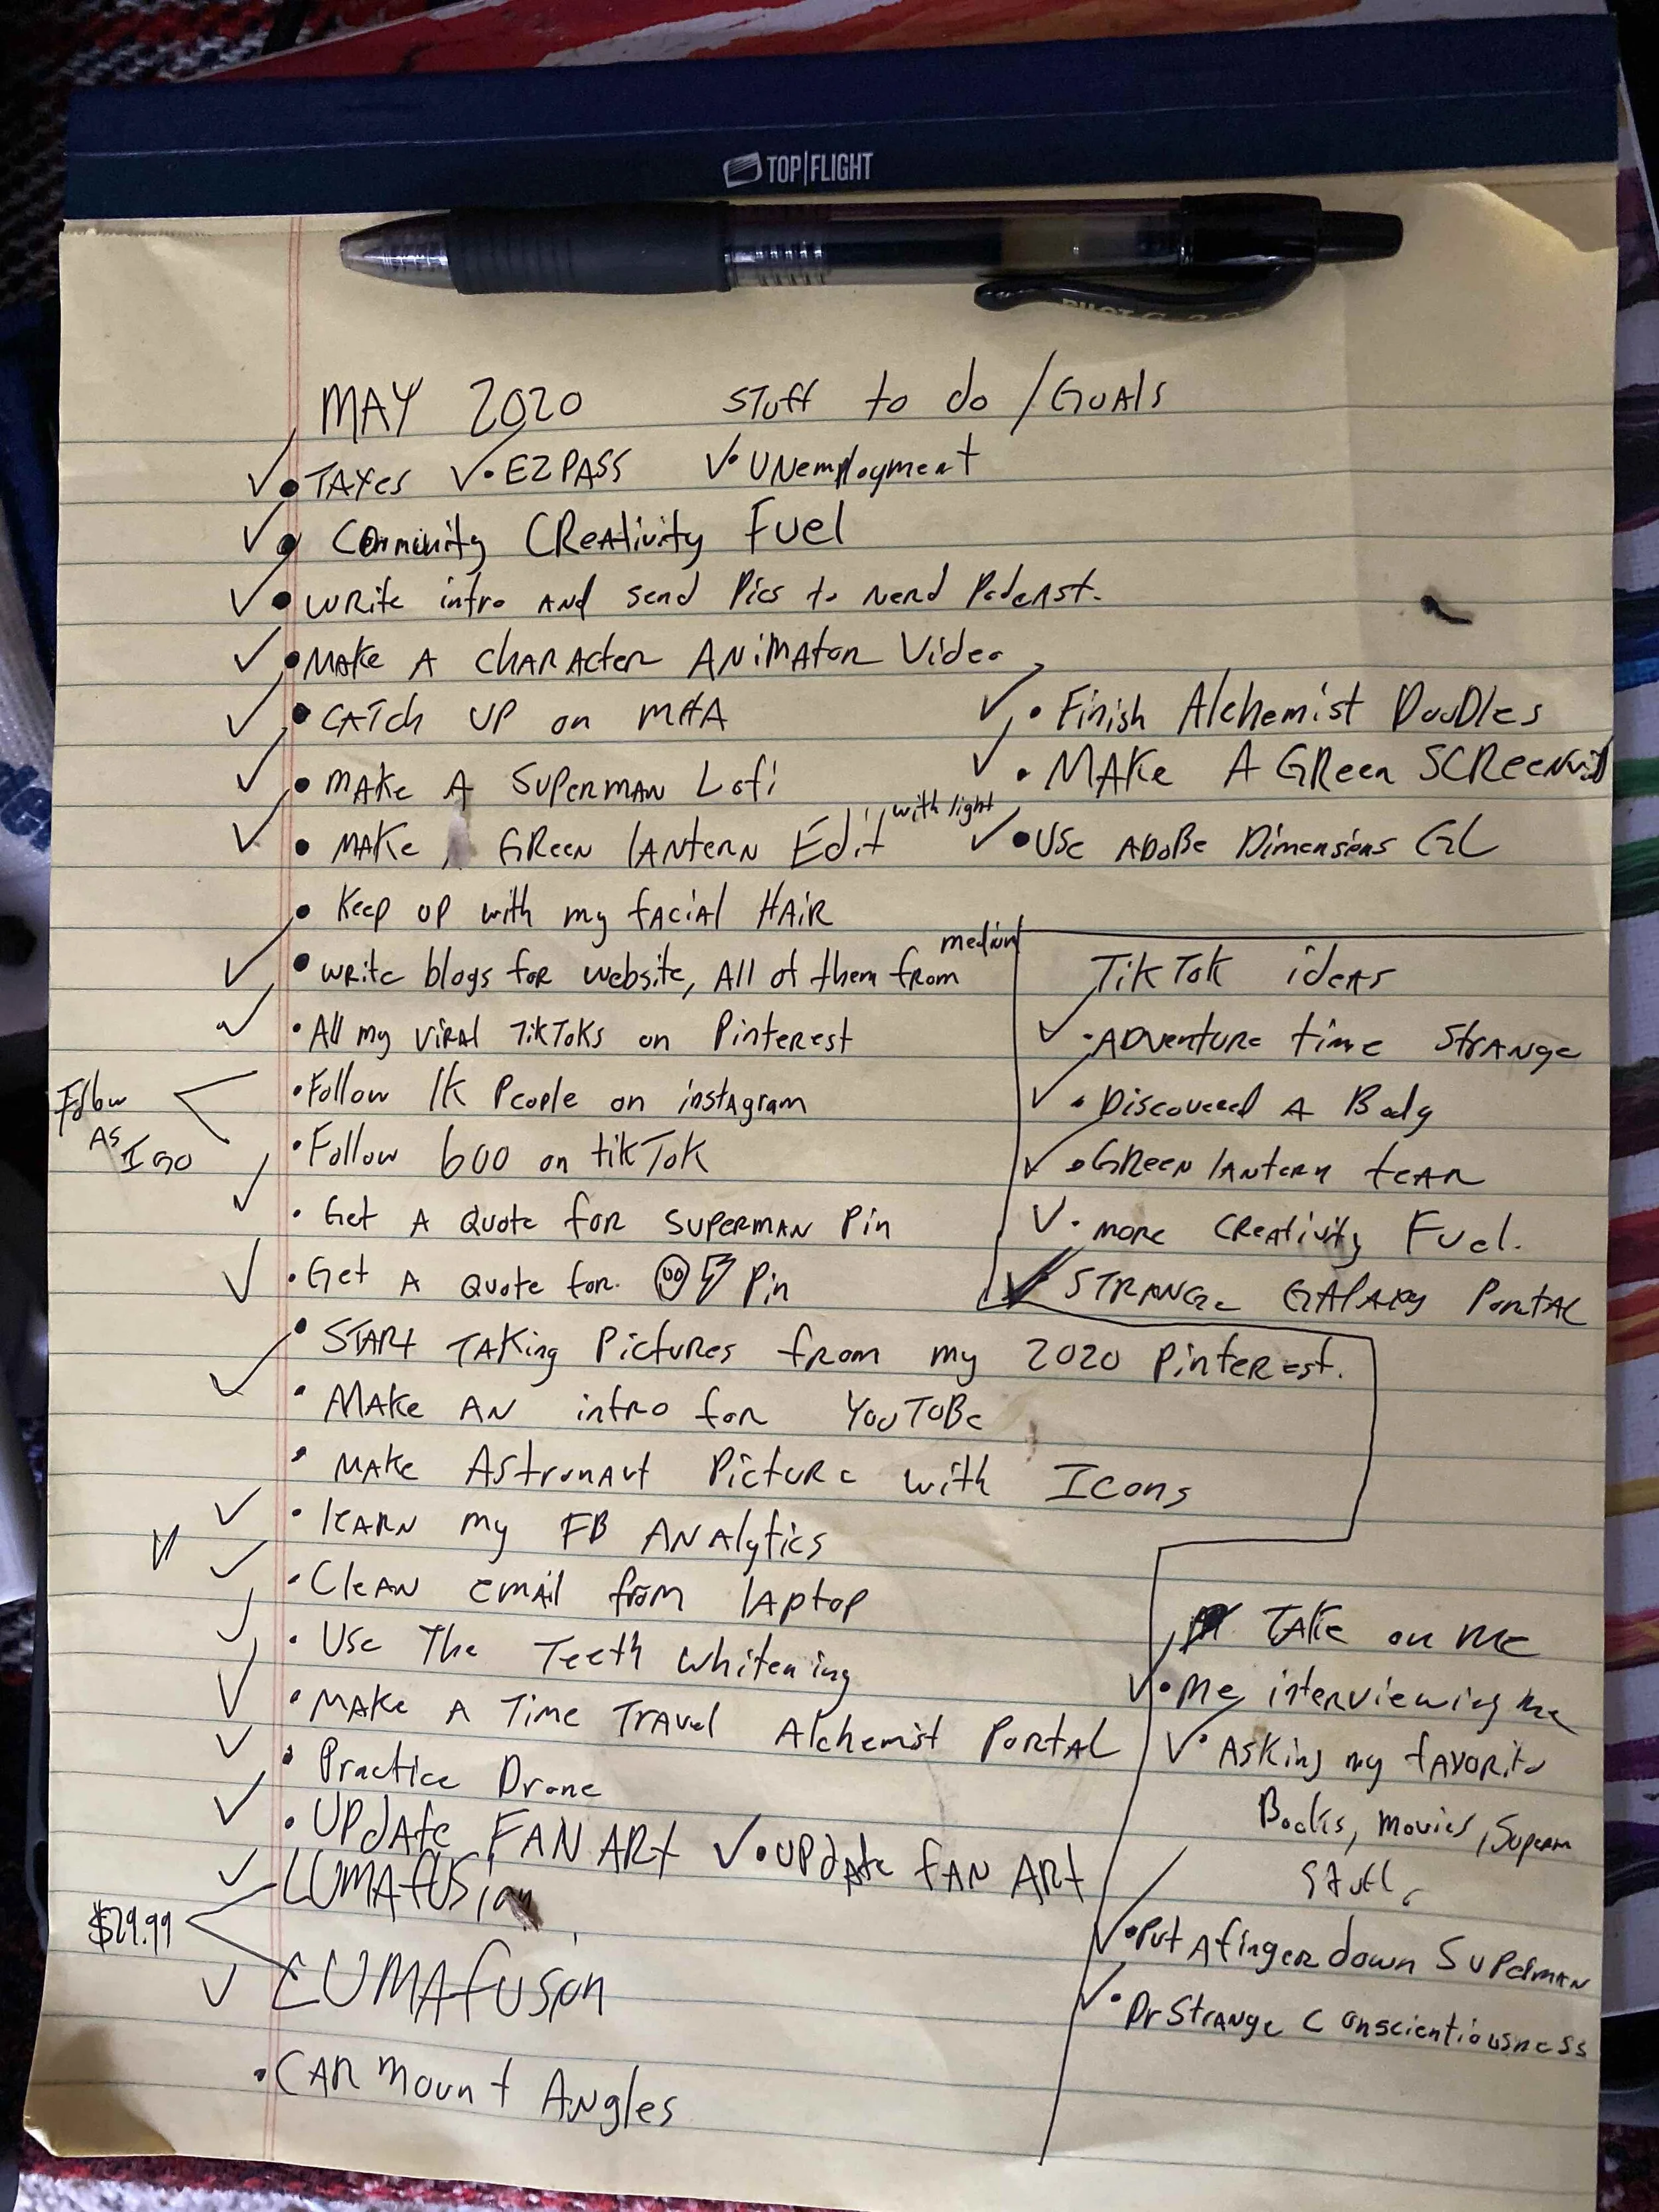 TOP|FLIGHT
PILOT G-2 07
MAY 2020 Stuff to do / GOALS
✓• TAXes ✓• EZPASS ✓• UNemployment
✓• Community CReativity Fuel
✓• WRite intro AND send Pics to Nerd Podcast.
✓• MAKe A chARActer ANiMAtor Video
✓• CATch UP on MHA
✓• MAKe A SUPERMAN Lofi
✓• MAKe GReen lANtern Edit with light
• Keep UP with my fACiAl HAiR
✓• WRite blogs for website, All of them from medium
✓• All my viRAl TikToks on PinteRest
Follow As I go
• Follow 1K People on instAgram
• Follow 600 on tikTok
✓• Get A Quote for SUPERMAN Pin
✓• Get A Quote for ☺⚡ Pin
• STARt TAKing Pictures from my 2020 PinteRest.
✓• MAKe AN intro for YouTuBe
• MAKe AstronAut Picture with Icons
✓• leARN my FB ANAlytics
✓• CleAN emAil from lAptop
✓• Use The Teeth whitening
✓• MAKe A Time TRAvel Alchemist PortAL
✓• Practice Drone
✓• UPdAte FAN ARt ✓• UPdAte fAN ARt
✓ LUMAfUSion
$29.99
✓ LUMAfusion
• CAR Mount Angles
✓• Finish Alchemist DooDles
✓• MAKe A GReen SCReen vid
✓• USe ADoBe Dimensions GL
TikTok ideAs
✓• ADventure time StrANge
✓• Discovered A Body
✓• GReen lANtern teAR
✓• more CReAtivity Fuel.
✓ STRANGe GAlAxy PortAL
TAKe on Me
✓• Me interviewing me
✓• Asking my fAvorite
Books, movies, Superm
Stuff
✓• Put A finger down SUPeRmAN
✓• Dr StrANge Conscientiousness